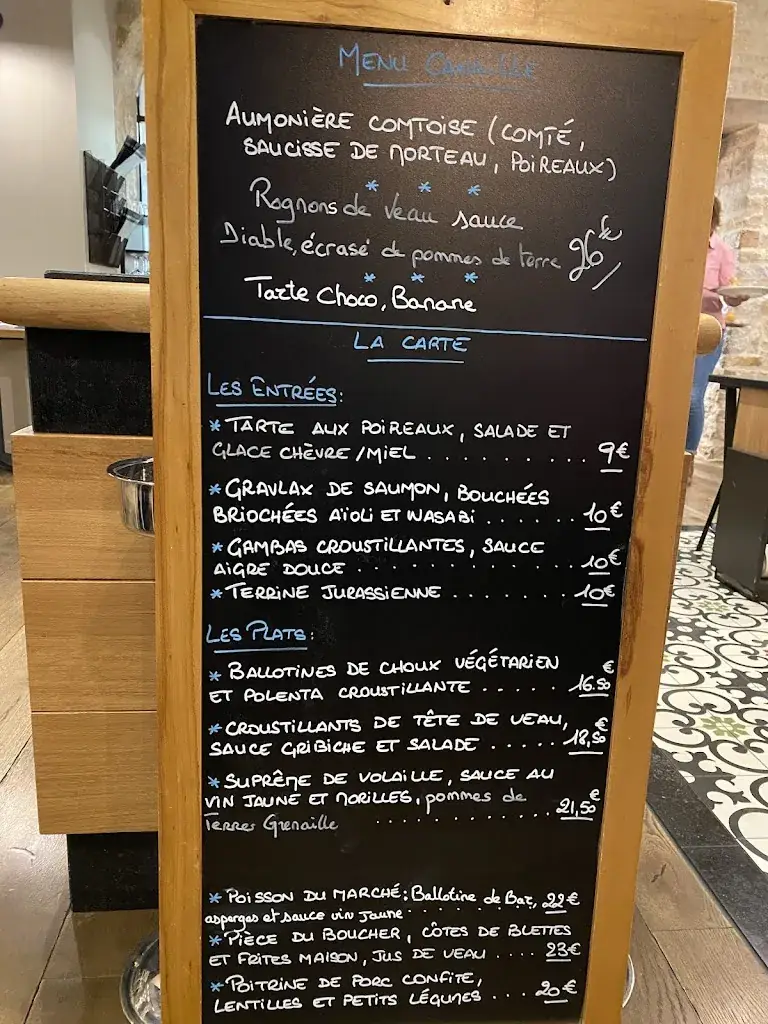 MENU
AUMONIÈRE COMTOISE (COMTÉ,
SAUCISSE DE MORTEAU, POIREAUX)
* * *
Rognons de veau sauce
Diable, écrasé de pommes de terre 26€
* * *
Tarte Choco, Banane
LA CARTE
LES ENTRÉES:
* TARTE AUX POIREAUX, SALADE ET
GLACE CHÈVRE/MIEL . . . . . . . . . . 9€
* GRAVLAX DE SAUMON, BOUCHÉES
BRIOCHÉES AÏOLI ET WASABI . . . . . . 10€
* GAMBAS CROUSTILLANTES, SAUCE
AIGRE DOUCE . . . . . . . . . . . . . 10€
* TERRINE JURASSIENNE . . . . . . . 10€
LES PLATS:
* BALLOTINES DE CHOUX VÉGÉTARIEN
ET POLENTA CROUSTILLANTE . . . . . 16.50€
* CROUSTILLANTS DE TÊTE DE VEAU,
SAUCE GRIBICHE ET SALADE . . . . . 18,50€
* SUPRÊME DE VOLAILLE, SAUCE AU
VIN JAUNE ET MORILLES, pommes de
Terres Grenaille . . . . . . . . . . . 21,50€
* POISSON DU MARCHÉ: Ballotine de Bar, 22€
asperges et sauce vin Jaune . . . . . . . .
* PIÈCE DU BOUCHER, CÔTES DE BLETTES
ET FRITES MAISON, JUS DE VEAU . . . . 23€
* POITRINE DE PORC CONFITE,
LENTILLES ET PETITS LÉGUMES . . . . 20€